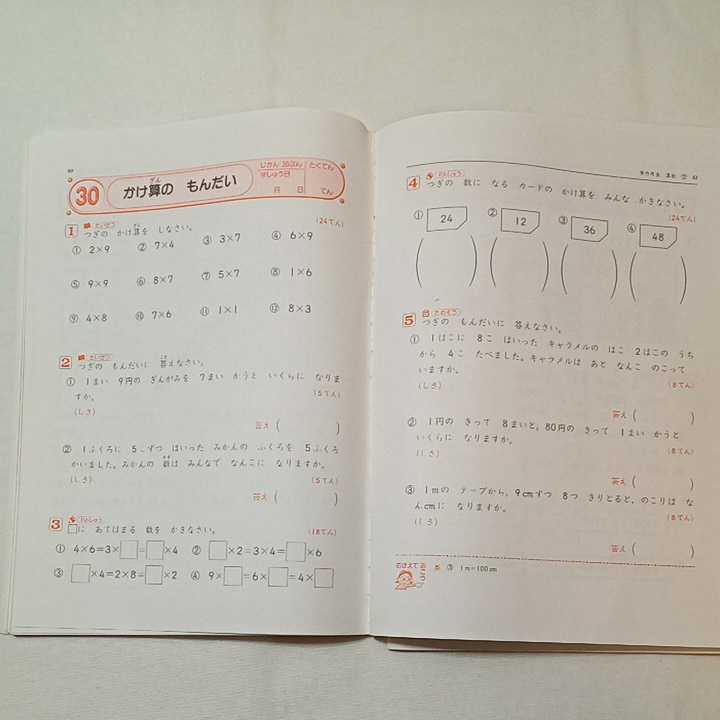 30
かけ算の もんだい
ざん
じかん 20ぷん
とくてん
月 日
てん
1
つぎの かけ算を しなさい。
(24てん)
① 2×9 ② 7×4 ③ 3×7 ④ 6×9
⑤ 9×9 ⑥ 8×7 ⑦ 5×7 ⑧ 1×6
⑨ 4×8 ⑩ 7×6 ⑪ 1×1 ⑫ 8×3
2
つぎの もんだいに 答えなさい。
① 1まい 9円の ぎんがみを 7まい かうと いくらに なりま
すか。
(5てん)
(しき)
答え ( )
② 1ふくろに 5こずつ はいった みかんの ふくろを 5ふくろ
かいました。みかんの 数は みんなで なんこに なりますか。
(しき)
(5てん)
答え ( )
3
□に あてはまる 数を かきなさい。
(18てん)
① 4×6=3×□=□×4 ② □×2=3×4=□×6
③ □×4=2×8=□×2 ④ 9×□=6×□=4×□
4
つぎの 数に なる カードの かけ算を みんな かきなさい。
(24てん)
① 24 ② 12 ③ 36 ④ 48
5
つぎの もんだいに 答えなさい。
① 1はこに 8こ はいった キャラメルの はこ 2はこの うち
から 4こ たべました。キャラメルは あと なんこ のこって
いますか。
(8てん)
(しき)
答え ( )
② 1円の きって 8まいと、80円の きって 1まい かうと
いくらに なりますか。
(8てん)
(しき)
答え ( )
③ 1mの テープから、9cmずつ 8つ きりとると、のこりは な
んcmに なりますか。
(8てん)
(しき)
答え ( )
5 ③ 1m=100cm